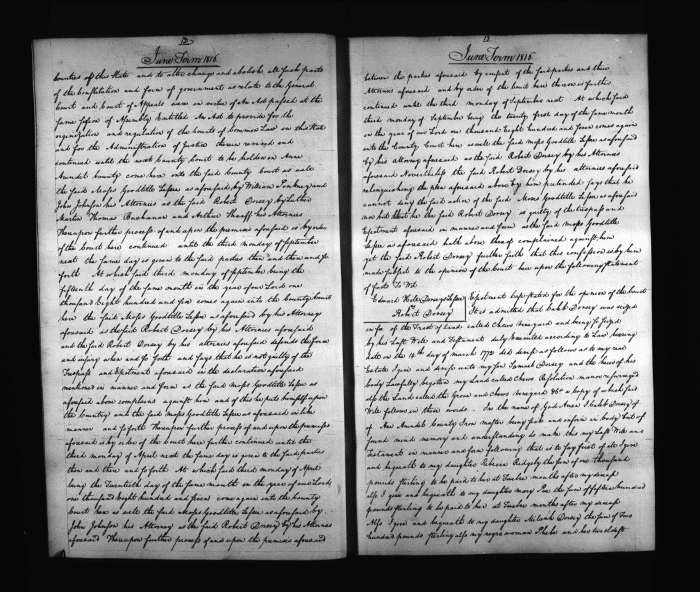 12
June Term 1816
Counties of this State and to alter change and abolish all such parts
of the Constitution and form of government as relate to the General
Court and Court of Appeals and in virtue of An Act passed at the
same session of Assembly Entitled An Act to provide for the
organization and regulation of the Courts of Common Law in this State
and for the Administration of Justice therein revised and
continued until the next County Court to be holden in Anne
Arundel County come here into the said County Court as well
the said Moses Goodtitle Lessee as aforesaid by William Pinkney and
John Johnson his Attornies as the said Robert Dorsey by Luther
Martin Thomas Buchanan and Arthur Shaaff his Attornies
Thereupon further process of and upon the premises aforesaid is by order
of the Court here continued until the third Monday of September
next the same day is given to the said parties then and there and so
forth At which said third Monday of September being the
fifteenth day of the same month in the year of our Lord one
thousand Eight hundred and six comes again into the County Court
here the said Moses Goodtitle Lessee as aforesaid by his Attorneys
aforesaid as the said Robert Dorsey by his Attornies aforesaid
and the said Robert Dorsey by his attornies aforesaid defends the force
and injury when and so forth and says that he is not guilty of the
Trespass and Ejectment aforesaid in the declaration aforesaid
mentioned in manner and form as the said Moses Goodtitle Lessee as
aforesaid above complains against him and of this he puts himself upon
the Country and the said Moses Goodtitle Lessee as aforesaid in like
manner and so forth Thereupon further process of and upon the premises
aforesaid is by order of the Court here further continued until the
third Monday of April next the same day is given to the said parties
then and there and so forth At which said third Monday of April
being the Twentieth day of the same month in the year of our Lord
one thousand Eight hundred and seven come again into the County
Court here as well the said Moses Goodtitle Lessee as aforesaid by
John Johnson his Attorney as the said Robert Dorsey by his Attornies
aforesaid Thereupon further process of and upon the premises aforesaid
13
June Term 1816
between the parties aforesaid by consent of the said parties and their
Attornies aforesaid and by order of the Court here thereon is further
continued until the third Monday of September next At which said
third Monday of September being the twenty first day of the same month
in the year of our Lord one thousand Eight hundred and seven comes again
into the County Court here as well the said Moses Goodtitle Lessee as aforesaid
by his attorney aforesaid as the said Robert Dorsey by his Attornies
aforesaid Nevertheless the said Robert Dorsey by his attornies aforesaid
relinquishing the plea aforesaid above by him pleaded says that he
cannot deny the said action of the said Moses Goodtitle Lessee as aforesaid
nor but that he the said Robert Dorsey is guilty of the trespass and
Ejectment aforesaid in manner and form as the said Moses Goodtitle
Lessee as aforesaid hath above thereof complained against him
yet the said Robert Dorsey further saith that this confession is by him
made subject to the opinion of the Court here upon the following statement
of facts To Wit
Edward Hill Dorsey's Lessee
vs
Robert Dorsey
Ejectment Case stated for the opinion of the Court
It is admitted that Caleb Dorsey was seized
in fee of the Tract of Land called Chews Vineyard and being so seized
by his Last Will and Testament duly executed according to Law bearing
date on the 14 day of March 1772 did devise as follows as to my real
Estate I give and devise unto my son Samuel Dorsey and the heirs of his
body Lawfully begotten my Land called Chews Resolution manor
also the Land called the Grove and Chews Vineyard &c a copy of which said
Will follows in these words In the name of God Amen I Caleb Dorsey of
of Ann Arundel County Iron master being sick and infirm in body but of
sound mind memory and understanding do make this my Last Will and
Testament in manner and form following that is to say first of all I give
and bequeath to my daughter Rebecca Ridgely the sum of one thousand
pounds sterling to be paid to her at Twelve months after my decease
Also I give and bequeath to my daughter Mary Pue the sum of fifteen hundred
pounds sterling to be paid to her at Twelve months after my decease
Also I give and bequeath to my daughter Milcah Dorsey the sum of Two
hundred pounds sterling also my negro woman Phebe and her two